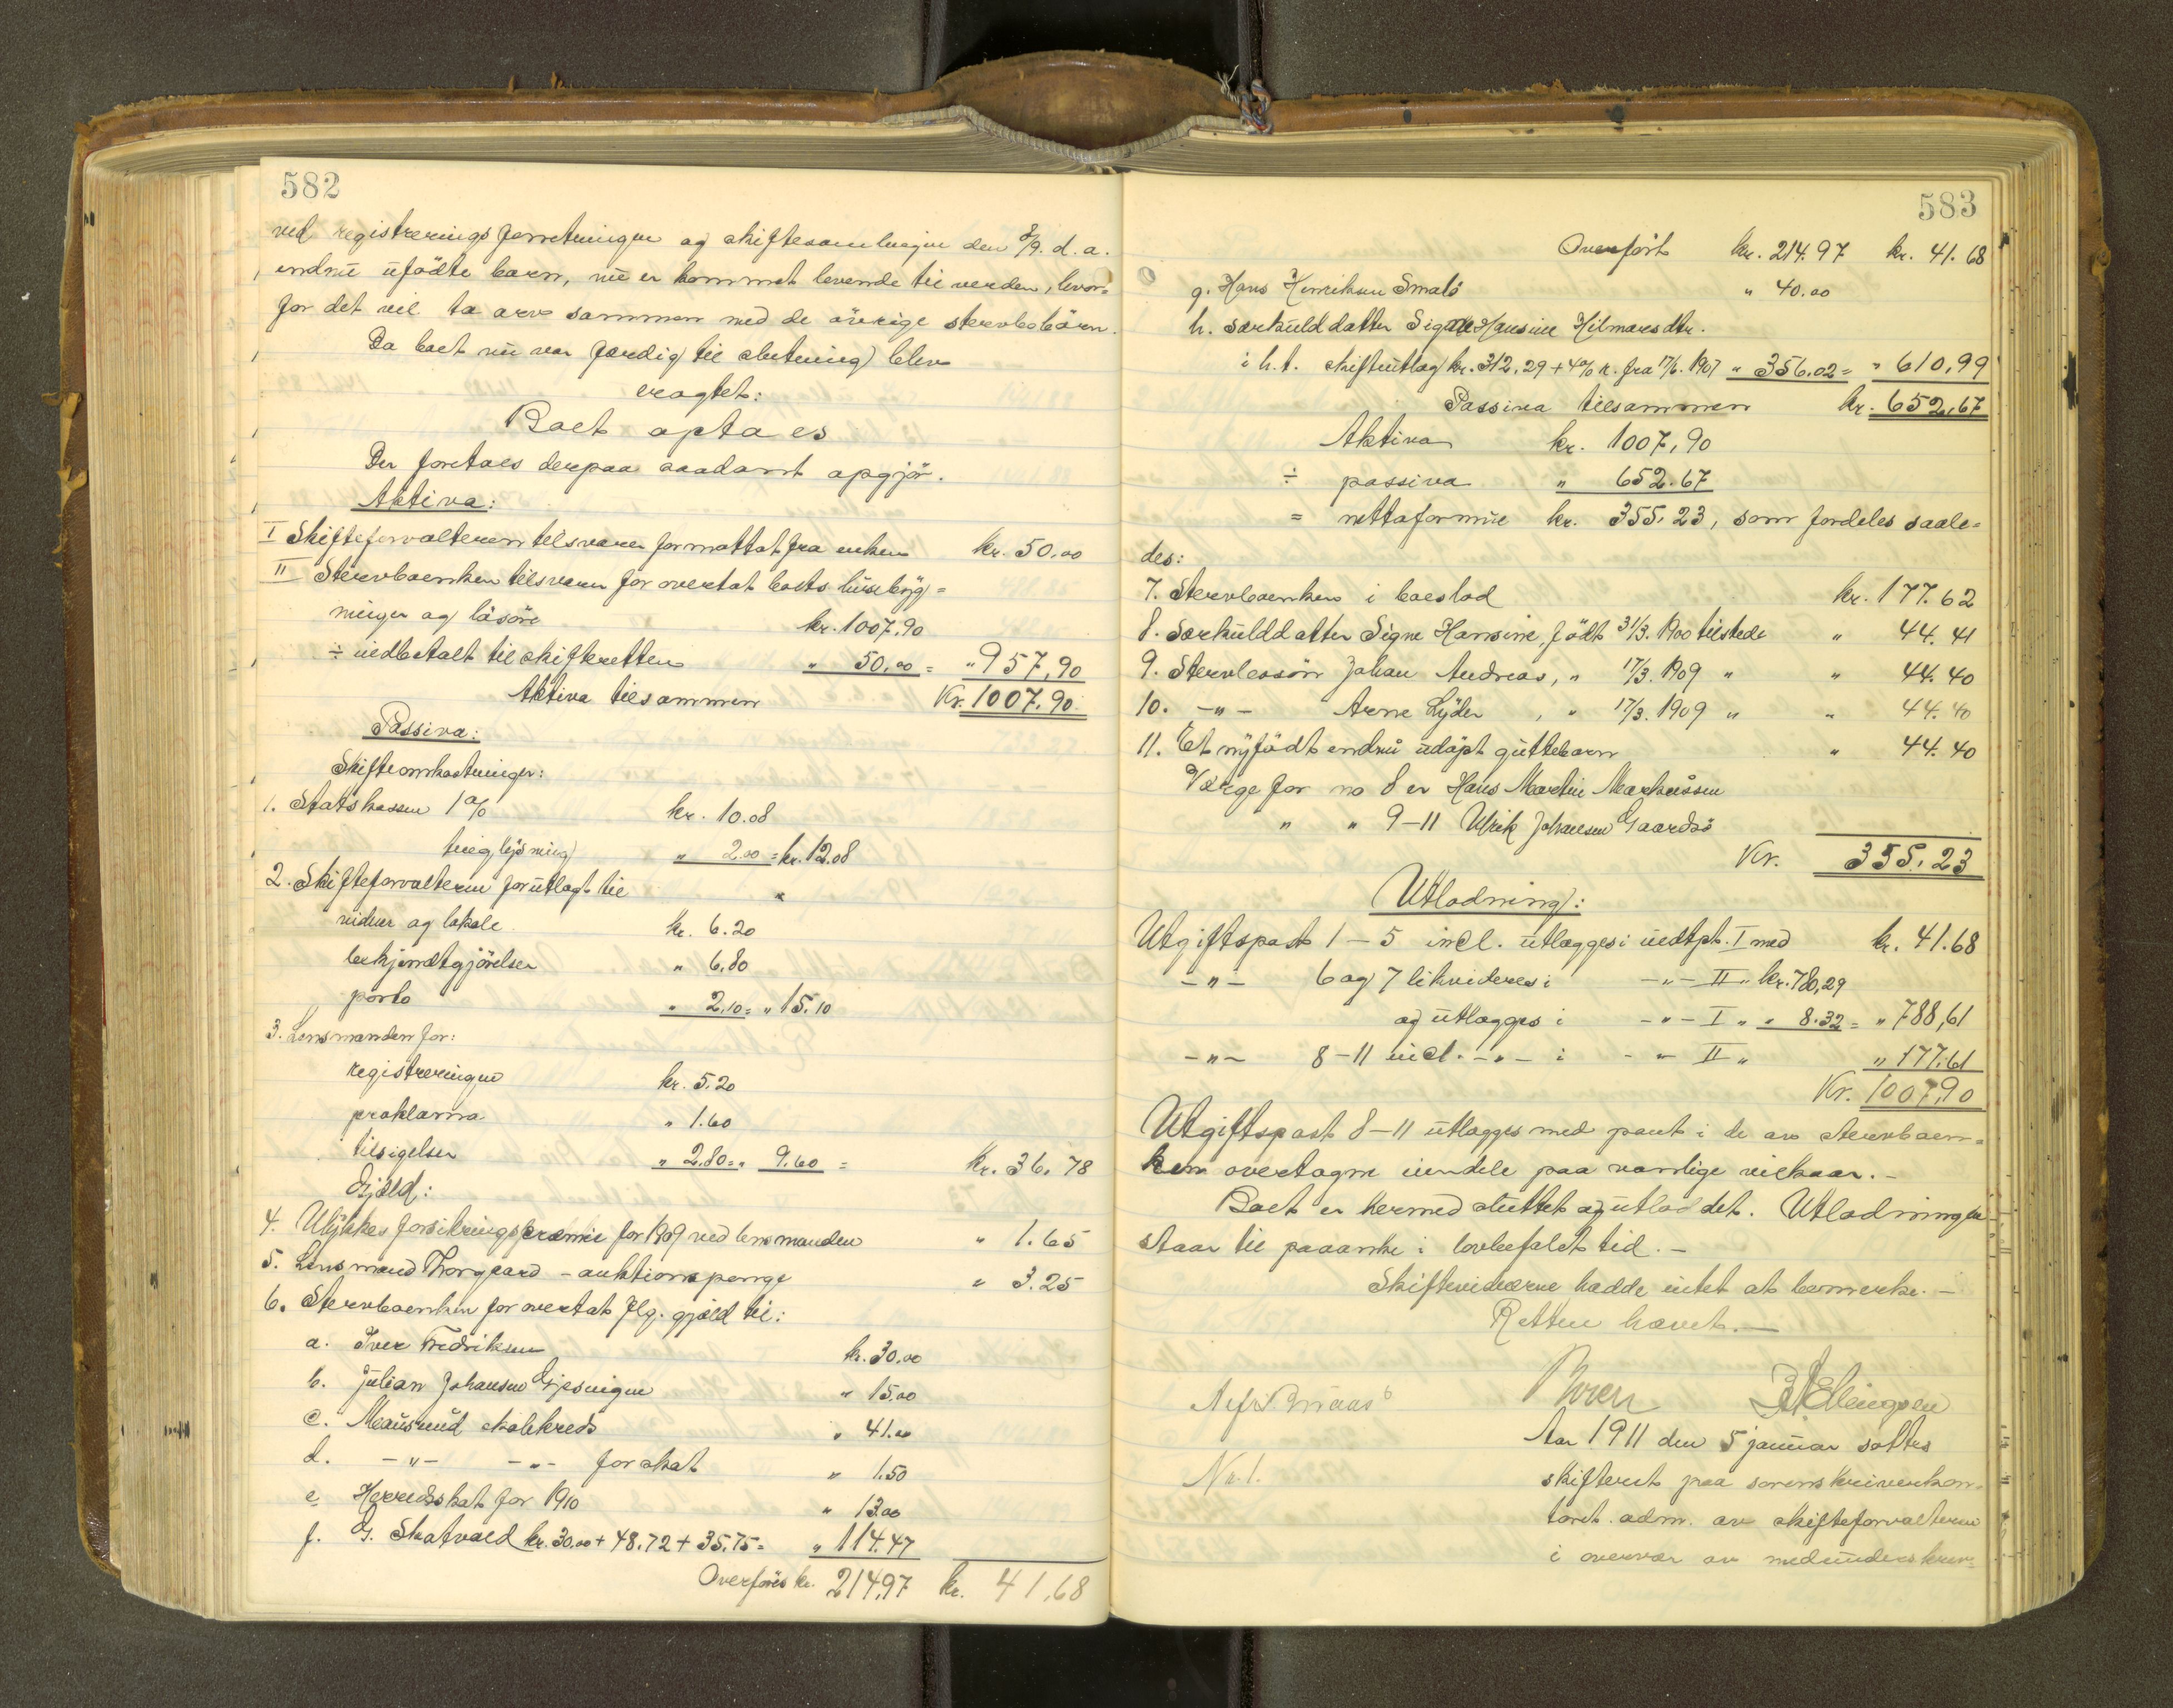 582
ved registreringsforretningen og skiftesamlingen den 3/9. d. a.
endnu ufödte barn, nu er kommet levende til verden, hvor=
for det vil ta arv sammen med de övrige stervbobörn.
Da boet nu var færdig til slutning blev
vragtet:
Boet optaes
Der foretoes derpaa saadant opgjör.
Aktiva:
I Skifteforvalteren tilsvarer formottat fra enken kr. 50,00
II Stervboenken tilsvarer for overtat boets husebyg=
ninger og lösöre kr. 1007,90
÷ indbetalt til skifteretten " 50,00 = " 957,90
Aktiva tilsammen Kr. 1007,90
Passiva:
Skifteomkostninger:
1. Statskassen 1 % kr. 10.08
tinglysning " 2.00 = kr. 12.08
2. Skifteforvalteren forutlagt til "
vidner og lokale kr. 6.20
bekjendtgjörelser " 6,80
porto " 2,10 = " 15,10
3. Lensmanden for:
registreringen kr. 5.20
proklama " 1.60
tilsigelser " 2,80 = " 9.60 = kr. 36,78
Gjæld:
4. Ulykkesforsikringspræmie for 1909 ved lensmanden " 1.65
5. Lensmand Thorgaard - auktionspenge " 3.25
6. Stervboenken for overtat flg. gjæld til:
a. Iver Fredriksen kr. 30,00
b. Julian Johansen Gjesingen " 15,00
c. Mausund skolekreds " 41.00
d. -"- -"- for skat " 1.50
e. Herredsskat for 1910 " 13.00
f. G. Skatvold kr. 30,00 + 48.72 + 35.75 = " 114.47
Overföres kr. 214,97 kr. 41,68
583
Overfört kr. 214.97 kr. 41.68
g. Hans Henriksen Smalö " 40.00
h. særkulddatter Signe Hansine Hilmarsdtr.
i h.t. skifteutlæg kr. 312,29 + 4% r. fra 17/6. 1907 " 356,02 = " 610,99
Passiva tilsammen kr. 652,67
Aktiva kr. 1007,90
÷ passiva " 652.67
= nettoformue kr. 355,23, som fordeles saale=
des:
7. Stervboenken i boeslod kr. 177.62
8. Særkulddatter Signe Hansine, födt 31/3. 1900 tilstede " 44.41
9. Stervbosön Johan Andreas, " 17/3. 1909 " " 44.40
10. -"- Arne Lyder, " 17/3. 1909 " " 44.40
11. Et nyfödt endnu udöpt guttebarn " 44.40
Værge for no 8 er Hans Martin Markussen
" " 9-11 Ulrik Johansen Gaardsö
Kr. 355.23
Utlodning:
Utgiftspost 1-5 incl. utlægges i indtpt. I med kr. 41.68
-"- 6 og 7 likvideres i -"- II " kr. 780,29
og utlægges i -"- I " " 8.32 = " 788,61
-"- 8-11 incl. -"- i -"- II " " 177.61
Kr. 1007,90
Utgiftspost 8-11 utlægges med pant i de av stervboen=
ken overtagne eiendele paa vanlige vilkaar.-
Boet er hermed sluttet og utloddet. Utlodningen
staar til paaanke i lovbefalet tid.-
Skiftevidnerne hadde intet at bemerke.-
Retten hævet.-
Ellingsen
Aar 1911 den 5 januar sattes
Nr. 1. skifteret paa sorenskriverkon=
toret adm. av skifteforvalteren
i overvær av medunderskrev=